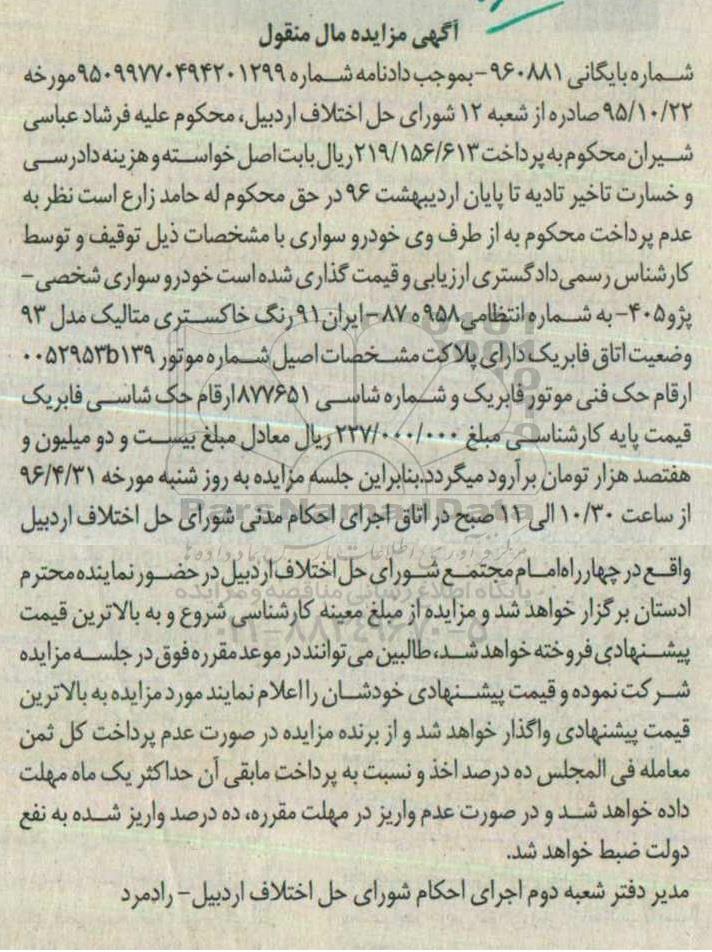 آگهی مزایده مال منقول
شماره بایگانی ۹۶۰۸۸۱-بموجب دادنامه شماره ۹۵۰۹۹۷۷۰۴۹۴۲۰۱۲۹۹مورخه
۹۵/۱۰/۲۲ صادره از شعبه ۱۲ شورای حل اختلاف اردبیل، محکوم علیه فرشاد عباسی
شیران محکوم به پرداخت ۲۱۹/۱۵۶/۶۱۳ریال بابت اصل خواسته و هزینه دادرسی
و خسارت تاخیر تادیه تا پایان اردیبهشت ۹۶ در حق محکوم له حامد زارع است نظر به
عدم پرداخت محکوم به از طرف وی خودرو سواری با مشخصات ذیل توقیف و توسط
کارشناس رسمی دادگستری ارزیابی و قیمت گذاری شده است خودرو سواری شخصی-
پژو۴۰۵- به شماره انتظامی۹۵۸ه ۸۷-ایران۹۱رنگ خاکستری متالیک مدل ۹۳
وضعیت اتاق فابریک دارای پلاکت مشخصات اصیل شماره موتور ۰۰۵۲۹۵۳b۱۳۹
ارقام حک فنی موتور فابریک و شماره شاسی ۸۷۷۶۵۱ارقام حک شاسی فابریک
قیمت پایه کارشناسی مبلغ ۲۲۷/۰۰۰/۰۰۰ریال معادل مبلغ بیست و دو میلیون و
هفتصد هزار تومان برآرود میگردد.بنابراین جلسه مزایده به روز شنبه مورخه ۹۶/۴/۳۱
از ساعت ۱۰/۳۰ الی ۱۱ صبح در اتاق اجرای احکام مدنی شورای حل اختلاف اردبیل
واقع در چهارراه امام مجتمع شورای حل اختلاف اردبیل در حضور نماینده محترم
ادستان برگزار خواهد شد و مزایده از مبلغ معینه کارشناسی شروع و به بالاترین قیمت
پیشنهادی فروخته خواهد شد، طالبین می توانند در موعد مقرره فوق در جلسه مزایده
شرکت نموده و قیمت پیشنهادی خودشان را اعلام نمایند مورد مزایده به بالاترین
قیمت پیشنهادی واگذار خواهد شد و از برنده مزایده در صورت عدم پرداخت کل ثمن
معامله فی المجلس ده درصد اخذ و نسبت به پرداخت مابقی آن حداکثر یک ماه مهلت
داده خواهد شد و در صورت عدم واریز در مهلت مقرره، ده درصد واریز شده به نفع
دولت ضبط خواهد شد.
مدیر دفتر شعبه دوم اجرای احکام شورای حل اختلاف اردبیل- رادمرد
ParsNamadData
پایگاه اطلاع رسانی مناقصه و مزایده